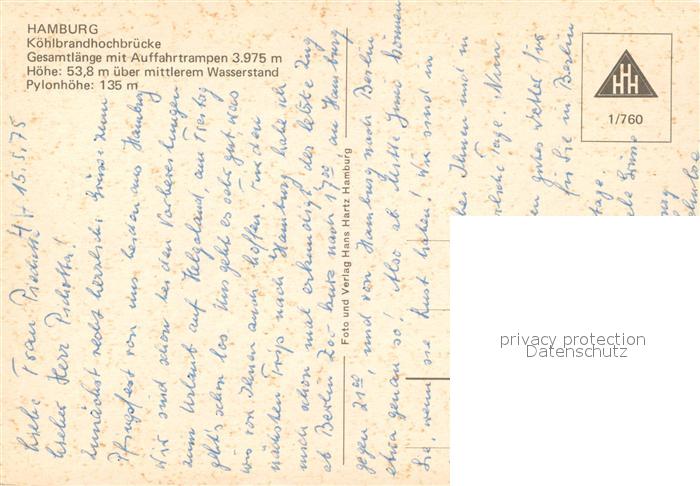 HAMBURG
Köhlbrandhochbrücke
Gesamtlänge mit Auffahrtrampen 3.975 m
Höhe: 53,8 m über mittlerem Wasserstand
Pylonhöhe: 135 m
HHH
1/760
Foto und Verlag Hans Hartz Hamburg
privacy protection
Datenschutz
15.5.75
Liebe Frau
Lieber Herr
Zunächst recht herzliche Grüsse zum
Pfingstfest von uns beiden aus Hamburg
Wir sind schon bei den Vorbereitungen
zum Urlaub auf Helgoland, am Freitag
geht's schon los. Uns geht es sehr gut, was
wir von Ihnen auch hoffen. Für den
nächsten Trip nach Hamburg habe ich
mich schon mal erkundigt, der letzte Zug
ab Berlin Zoo kurz nach 17.00 an Hamburg
gegen 21.00, und von Hamburg nach Berlin
etwa genau so! Also ab Mitte Juni können
Sie, wenn sie Lust haben! Wir sind in
Ihnen und
Tage. Nun
gutes Wetter für
für Sie in Berlin
Grüsse